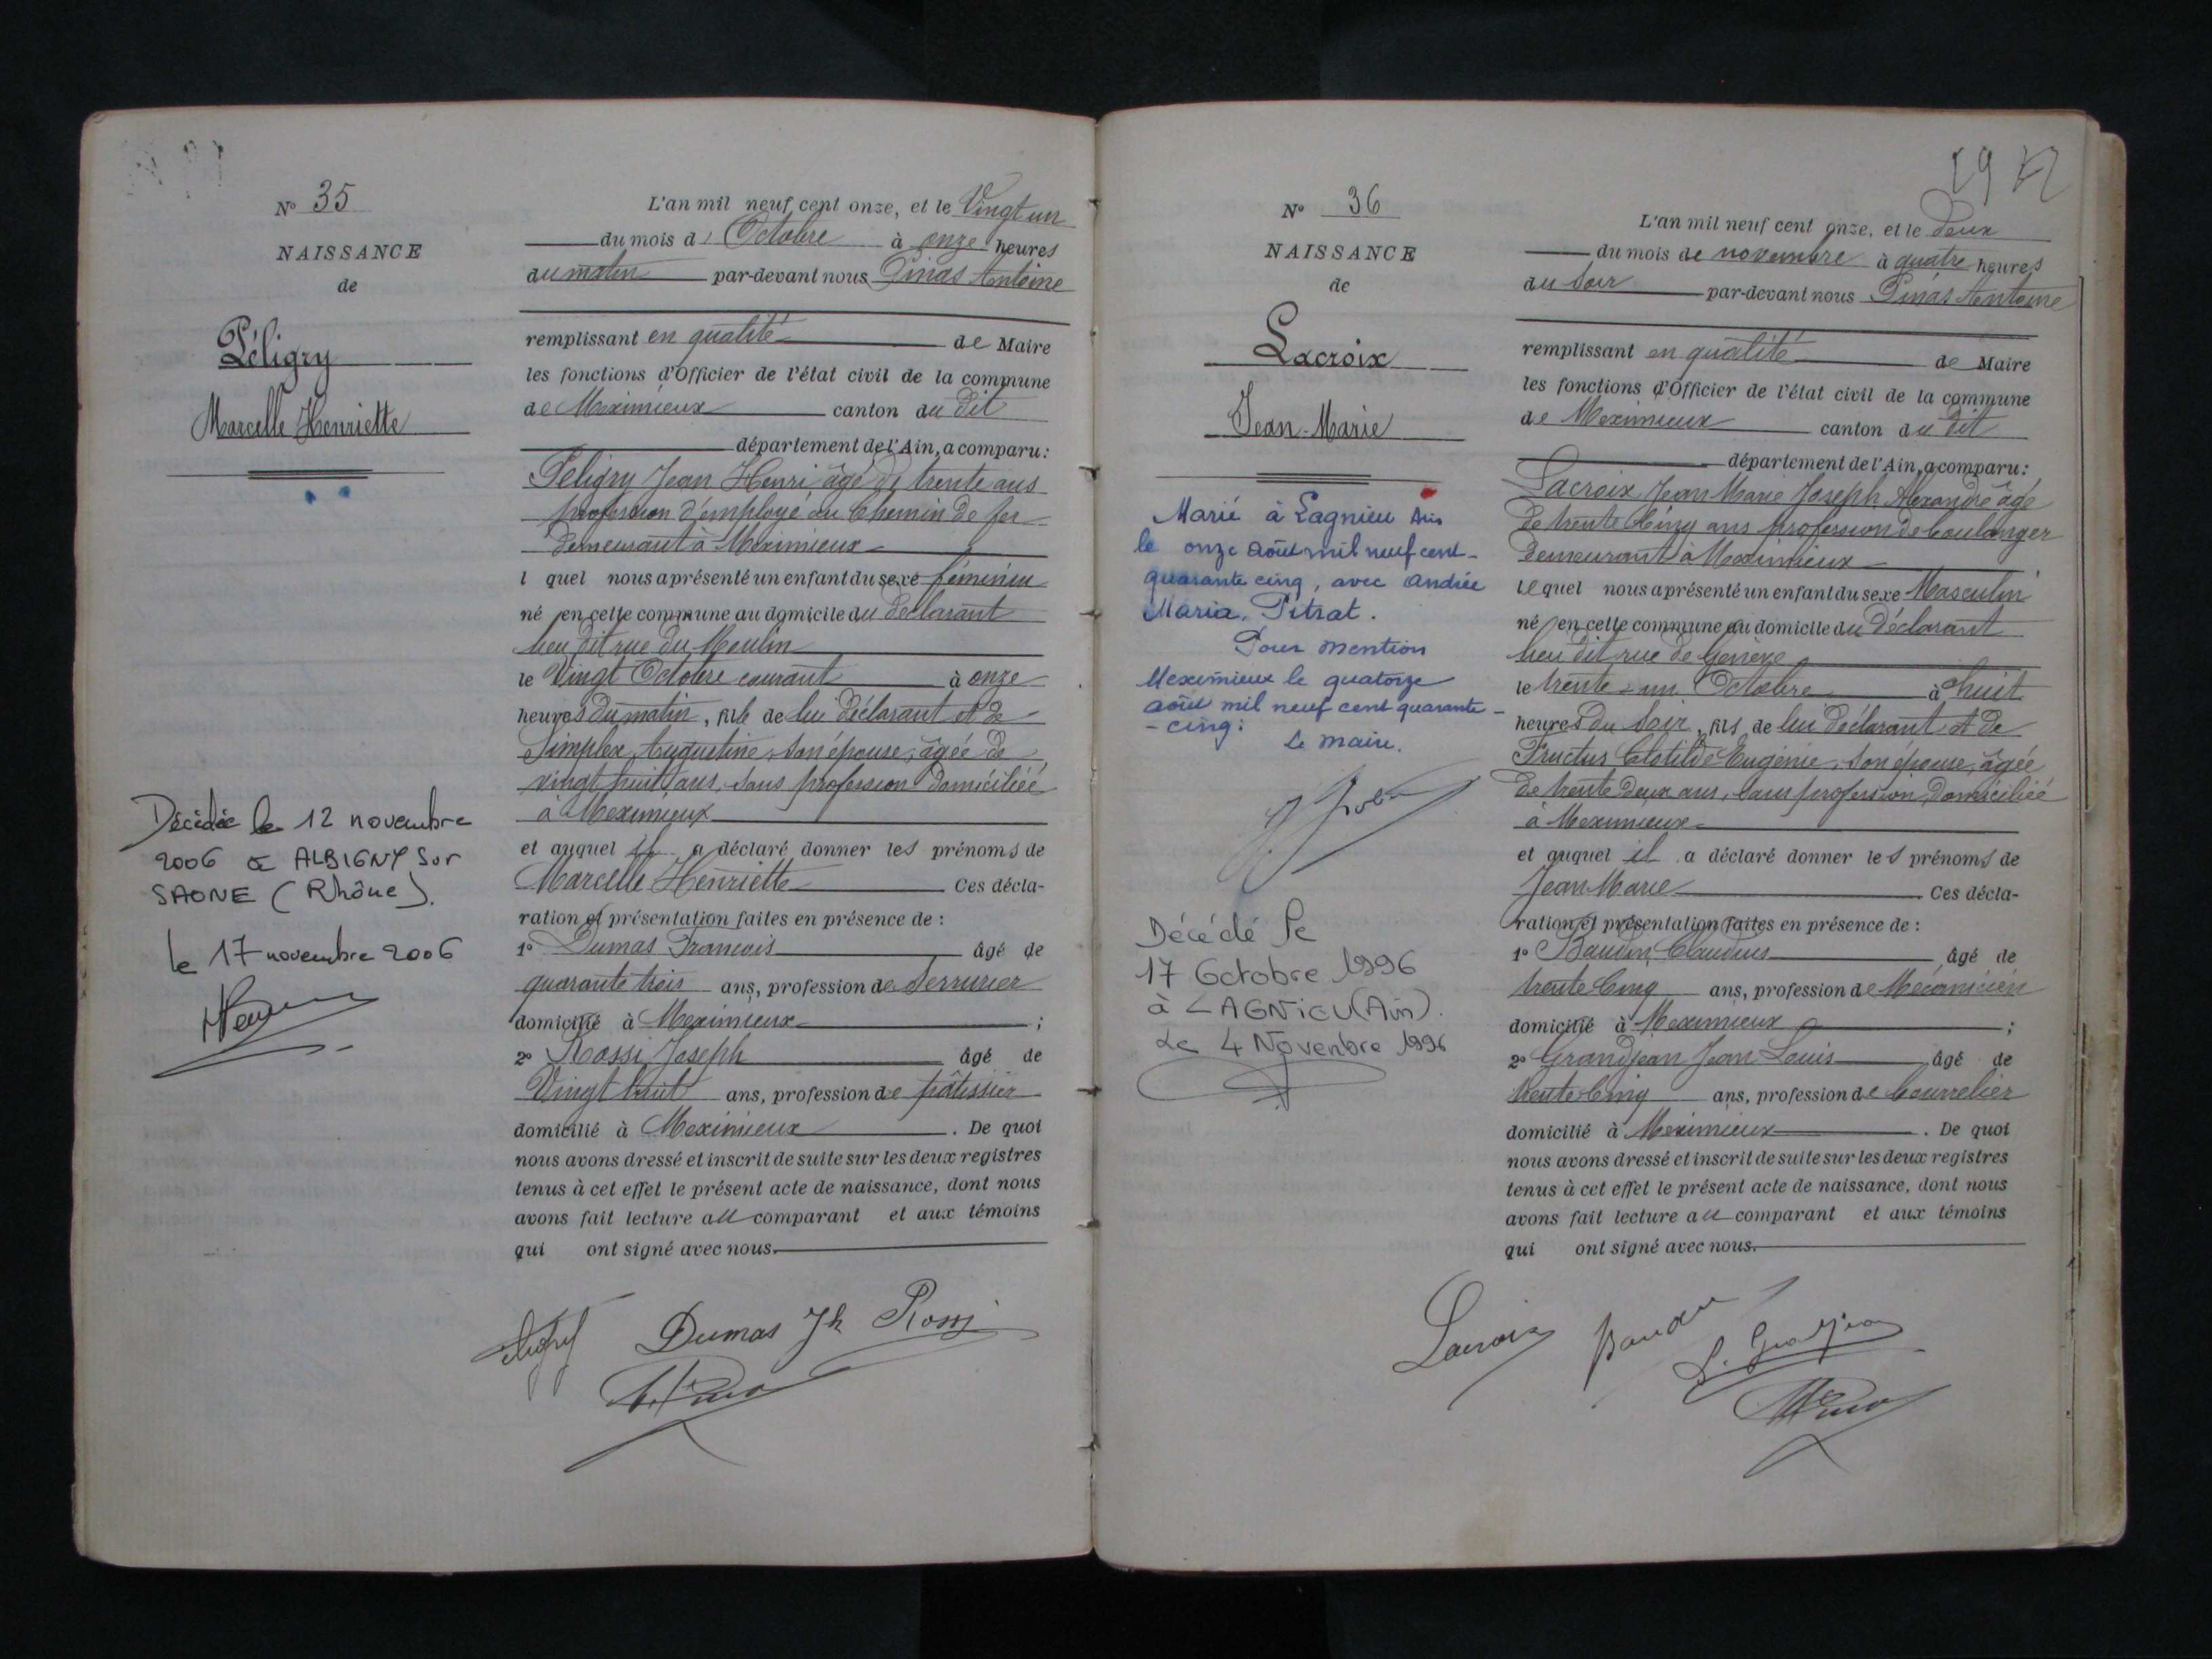 N° 35
NAISSANCE
de
Péligry
Marcelle Henriette
Décédée le 12 novembre
2006 à ALBIGNY sur
SAONE (Rhône).
le 17 novembre 2006
L'an mil neuf cent onze, et le Vingt un
du mois d Octobre à onze heures
du matin par-devant nous Pinas Antoine
remplissant en qualité de Maire
les fonctions d'Officier de l'état civil de la commune
de Meximieux canton du dit
département de l'Ain, a comparu:
Peligry Jean Henri âgé de trente ans
profession d'employé au Chemin de fer
demeurant à Meximieux
l quel nous a présenté un enfant du sexe féminin
né en cette commune au domicile du déclarant
lieu dit rue du Moulin
le Vingt Octobre courant à onze
heures du matin, fille de lui déclarant et de
Simplex Augustine, son épouse, âgée de
vingt huit ans, sans profession domiciliée
à Meximieux
et auquel il a déclaré donner les prénoms de
Marcelle Henriette Ces décla-
ration et présentation faites en présence de :
1° Dumas François âgé de
quarante trois ans, profession de Serrurier
domicilié à Meximieux ;
2° Rossi Joseph âgé de
Vingt huit ans, profession de pâtissier
domicilié à Meximieux . De quoi
nous avons dressé et inscrit de suite sur les deux registres
tenus à cet effet le présent acte de naissance, dont nous
avons fait lecture au comparant et aux témoins
qui ont signé avec nous.
Dumas Jh Rossi
N° 36
NAISSANCE
de
Lacroix
Jean-Marie
Marié à Lagnieu Ain
le onze août mil neuf cent-
quarante cinq, avec Andrée
Maria, Pitrat.
Pour mention
Meximieux le quatorze
août mil neuf cent quarante-
-cinq:
Le maire.
Décédé le
17 Octobre 1996
à LAGNIEU (Ain).
Le 4 Novembre 1996
L'an mil neuf cent onze, et le deux
du mois de novembre à quatre heures
du soir par-devant nous Pinas Antoine
remplissant en qualité de Maire
les fonctions d'Officier de l'état civil de la commune
de Meximieux canton du dit
département de l'Ain, a comparu:
Lacroix Jean Marie Joseph Alexandre âgé
de trente cinq ans profession de boulanger
demeurant à Meximieux
lequel nous a présenté un enfant du sexe Masculin
né en cette commune au domicile du Déclarant
lieu dit rue de Genève
le trente-un Octobre à huit
heures du soir, fils de lui déclarant et de
Fructus Clotilde Eugénie, son épouse, âgée
de trente deux ans, sans profession, domiciliée
à Meximieux
et auquel il a déclaré donner les prénoms de
Jean Marie Ces décla-
ration et présentation faites en présence de :
1° Baudin Claudius âgé de
trente cinq ans, profession de Mécanicien
domicilié à Meximieux ;
2° Grandjean Jean Louis âgé de
trente cinq ans, profession de bourrelier
domicilié à Meximieux . De quoi
nous avons dressé et inscrit de suite sur les deux registres
tenus à cet effet le présent acte de naissance, dont nous
avons fait lecture au comparant et aux témoins
qui ont signé avec nous.
Lacroix